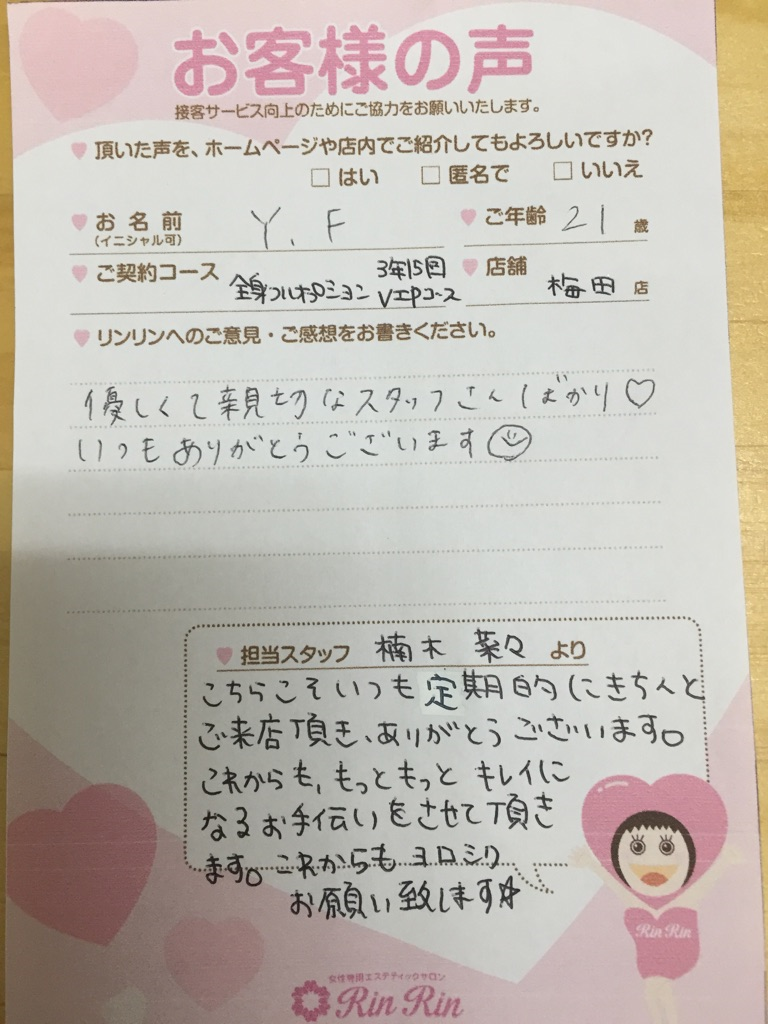 お客様の声
接客サービス向上のためにご協力をお願いいたします。
頂いた声を、ホームページや店内でご紹介してもよろしいですか?
□ はい □ 匿名で □ いいえ
お名前 Y.F ご年齢 21 歳
(イニシャル可)
ご契約コース 全身フルオプション 3年15回 VIPコース 店舗 梅田 店
リンリンへのご意見・ご感想をお書きください。
優しくて親切なスタッフさんばかり♡
いつもありがとうございます☺
担当スタッフ 楠木 菜々 より
こちらこそいつも定期的にきちんと
ご来店頂き、ありがとうございます。
これからも、もっともっと キレイに
なるお手伝いをさせて頂き
ます。これからもヨロシク
お願い致します☆
Rin Rin
女性専用エステティックサロン
Rin Rin